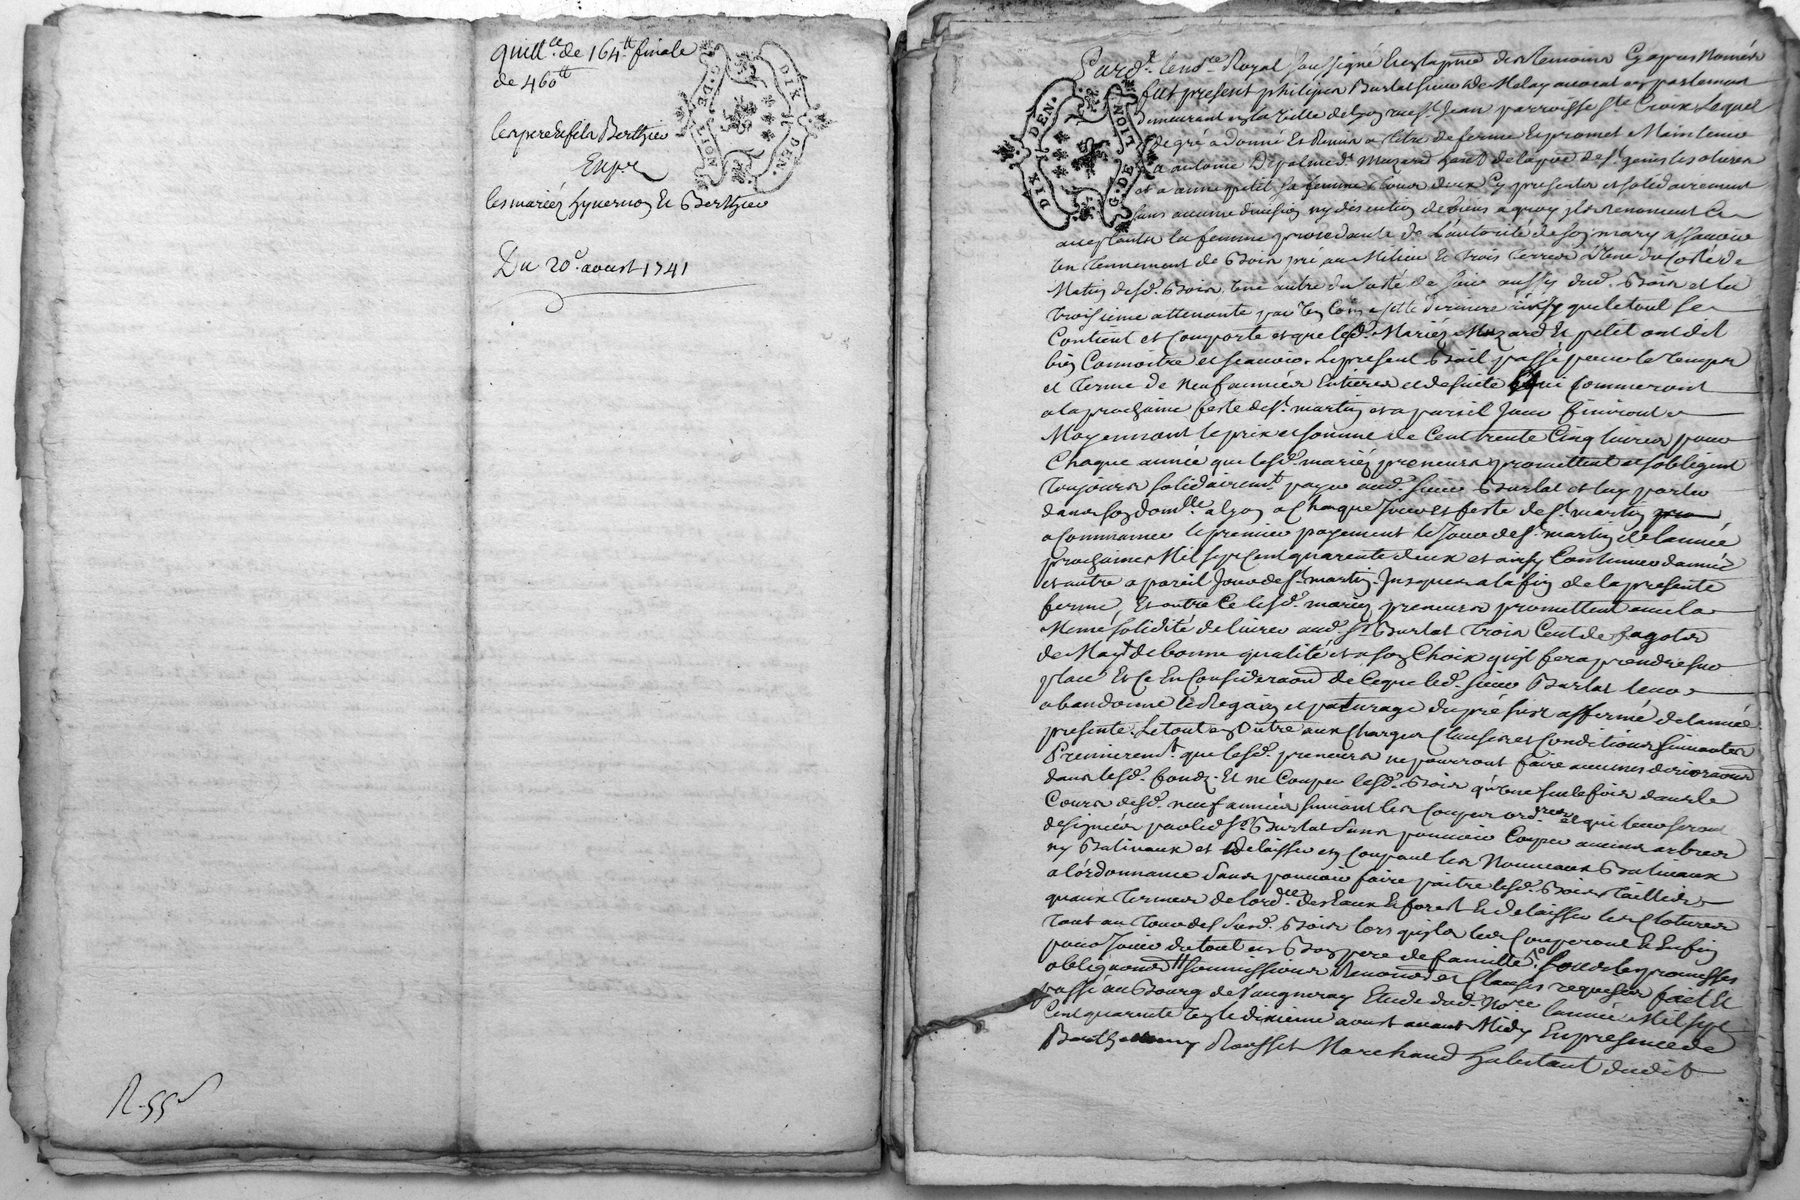 quitt.ce de 164.tt finale
de 460tt
les pere et fils Berthieu
les mariéz hyvernoz et Berthieu
Du 20e. aoust 1741
G. DE LION
DIX DEN.
R. 55 s
DIX DEN.
G. DE LION
Par dt. le no.re Royal soussigné et en la presence des temoins cy apres només
fut present philipes Burlat sieur de Molay avocat en parlement
demeurant en la ville de Lyon rue St. Jean parroisse Ste Croix Lequel
de gré a donné et remis a titre de ferme et promet maintenir
a antoine mazard
et a anne petit sa femme tous deux cy presents et solidairement
sans aucune division ny discution de biens a quoy ils renoncent
acceptants la femme procedante de l'autorité de son mary assavoir
un tennement de Bois pré au milieu et trois terres l'une du costé de
matin desd. Bois une autre du costé de soir aussy dud. Bois et la
troisieme attenante a cette derniere ainsy que le tout se
Contient et comporte et que lesd. Mariéz Mazard et petit ont dit
bien Connoitre et scavoir. Le present Bail passé pour le temps
et terme de neuf années entieres et de suite qui commenceront
a la prochaine feste de St. martin et a pareil Jour finiront
Moyennant le prix et somme de Cent trente Cinq livres pour
Chaque année que lesd. mariéz preneurs promettent et s'obligent
toujours solidairemt. payer aud. sieur Burlat et luy porter
dans son domlle a Lyon a chaque Jour et feste de St. martin
a Commancer le premier payement le Jour de St. martin de l'année
prochaine Mil sept Cent quarente deux et ainsy Continuer d'année
et autre a pareil Jour de St. martin Jusques a la fin de la presente
ferme, Et outre Ce lesd. mariez preneurs promettent avec la
Meme solidité de livrer aud. Sr. Burlat trois Cent de fagots
de May de bonne qualité et a son Choix qu'il fera prendre sur
place Et Ce En Consideraon de Ceque led. sieur Burlat leur
abandonne le Regain et paturage du pré susd. affermé de l'année
presente. Le tout en outre aux Charges Clauses et Conditions suivantes
Premierement. que lesd. preneurs ne pourront faire aucunes
dans lesd. fondz. Et ne Couper lesd. Bois qu'une seule fois dans le
Cours desd. neuf années suivant les Coupes ord.res et qui leur seront
designées par led. Sr. Burlat sans pouvoir Couper aucuns arbres
ny Baliveaux et delaisser en Coupant les Nouveaux Baliveaux
a l'ordonnance sans pouvoir faire paitre lesd. Bois taillies
qu'aux termes de l'ord.ce des Eaux et forest Et delaisser les Clotures
tout au tour des susd. Bois lors qu'ils les Couperont Et Enfin
pour Jouir du tout en Bon pere de famille. promesses
obligaons soumissions Renonons et Clauses requises fait Et
passé au Bourg de Vaugneray Etude dud. No.re l'année Mil sept
Cent quarente Un le dixieme aoust avant Midy En presence de
Barthelemy Rousset Marchand habitant dudit